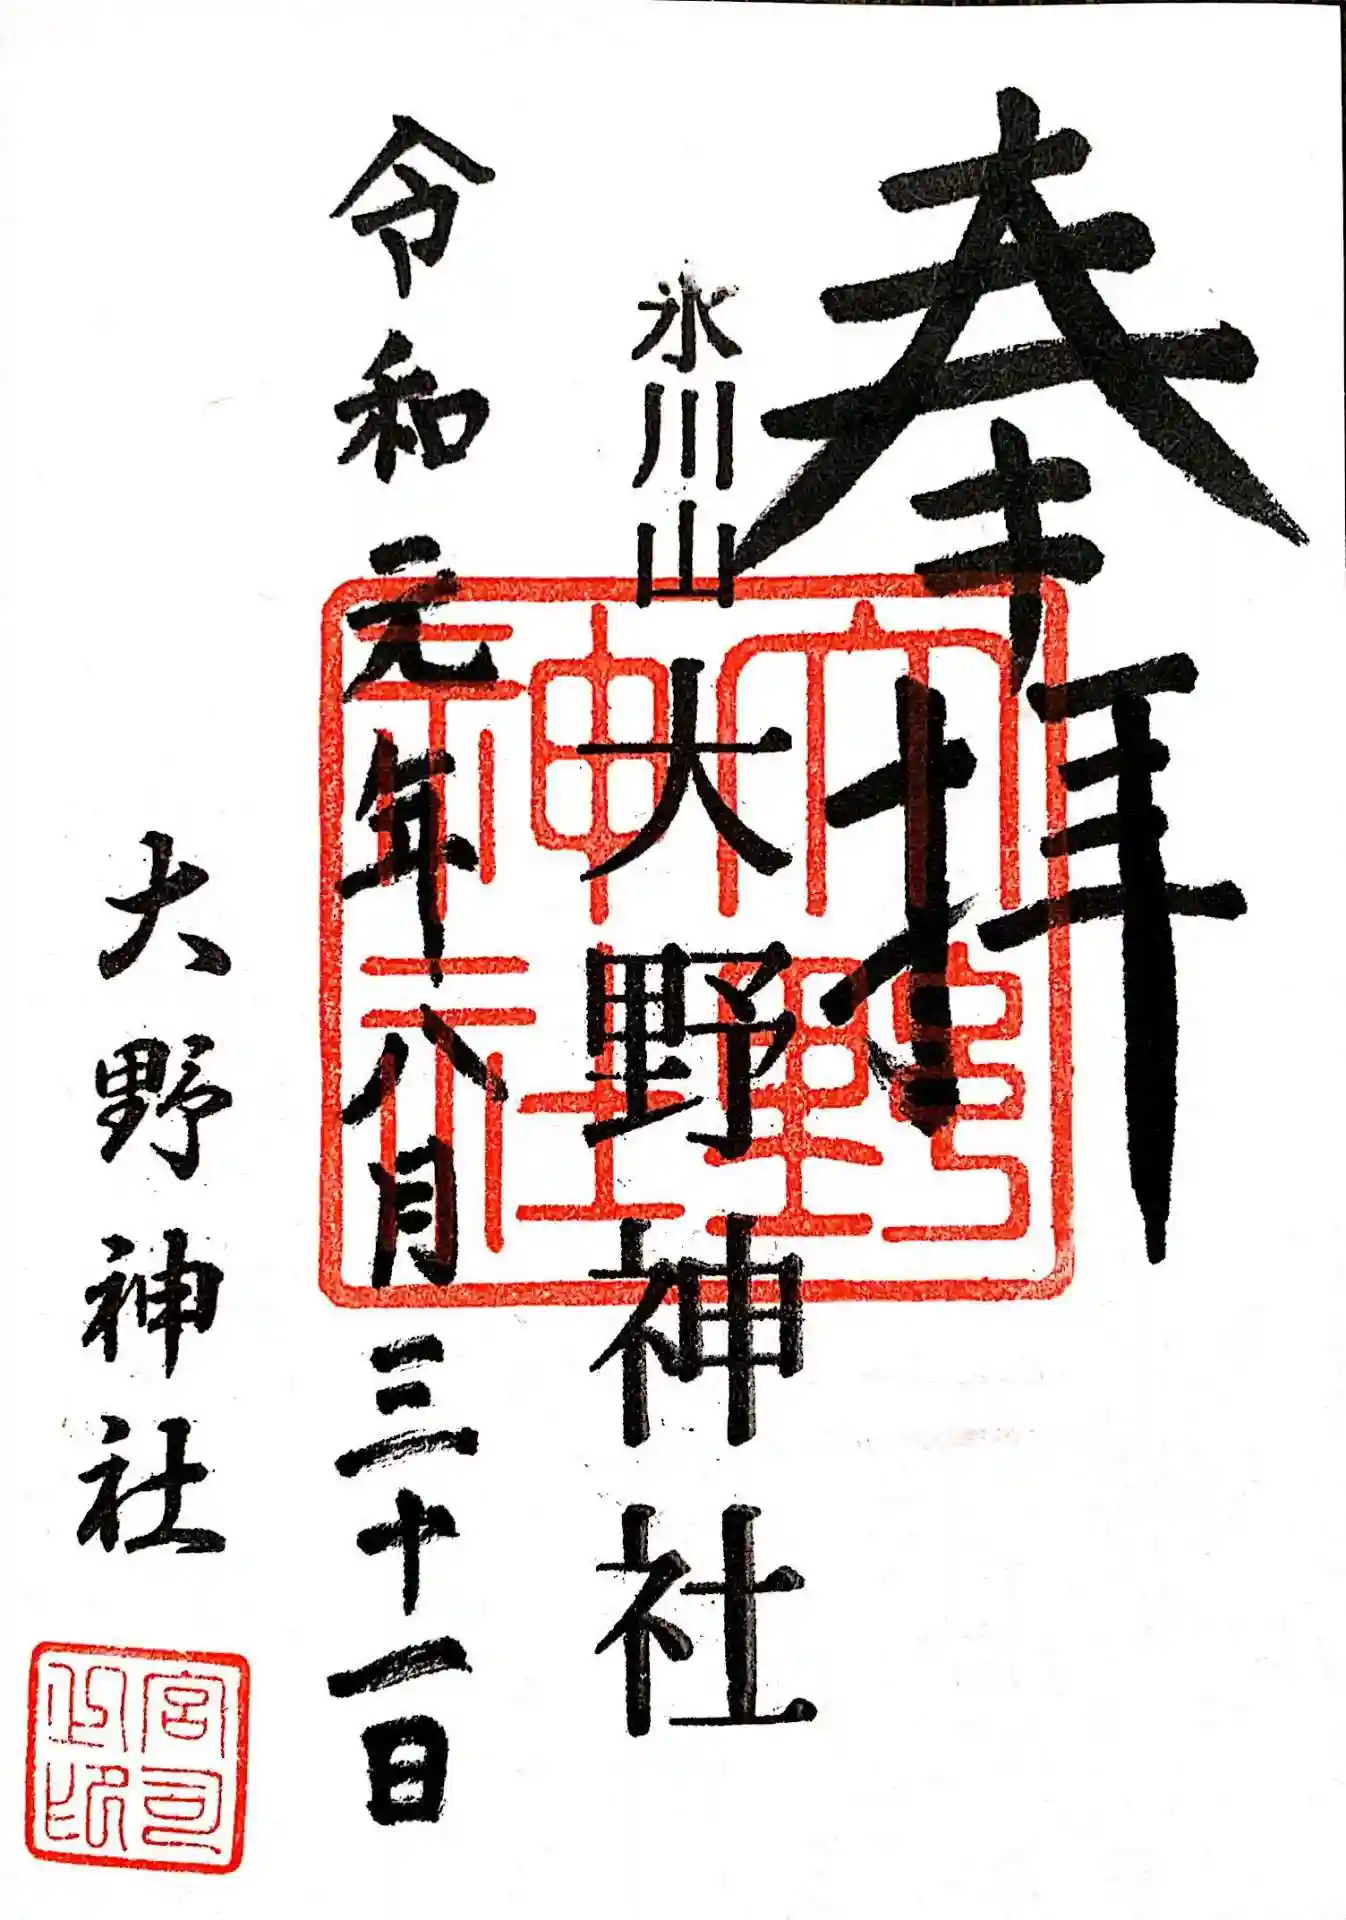 奉拝
氷川山
大野神社
大野神社
令和元年八月三十一日
大野神社
宮司之印